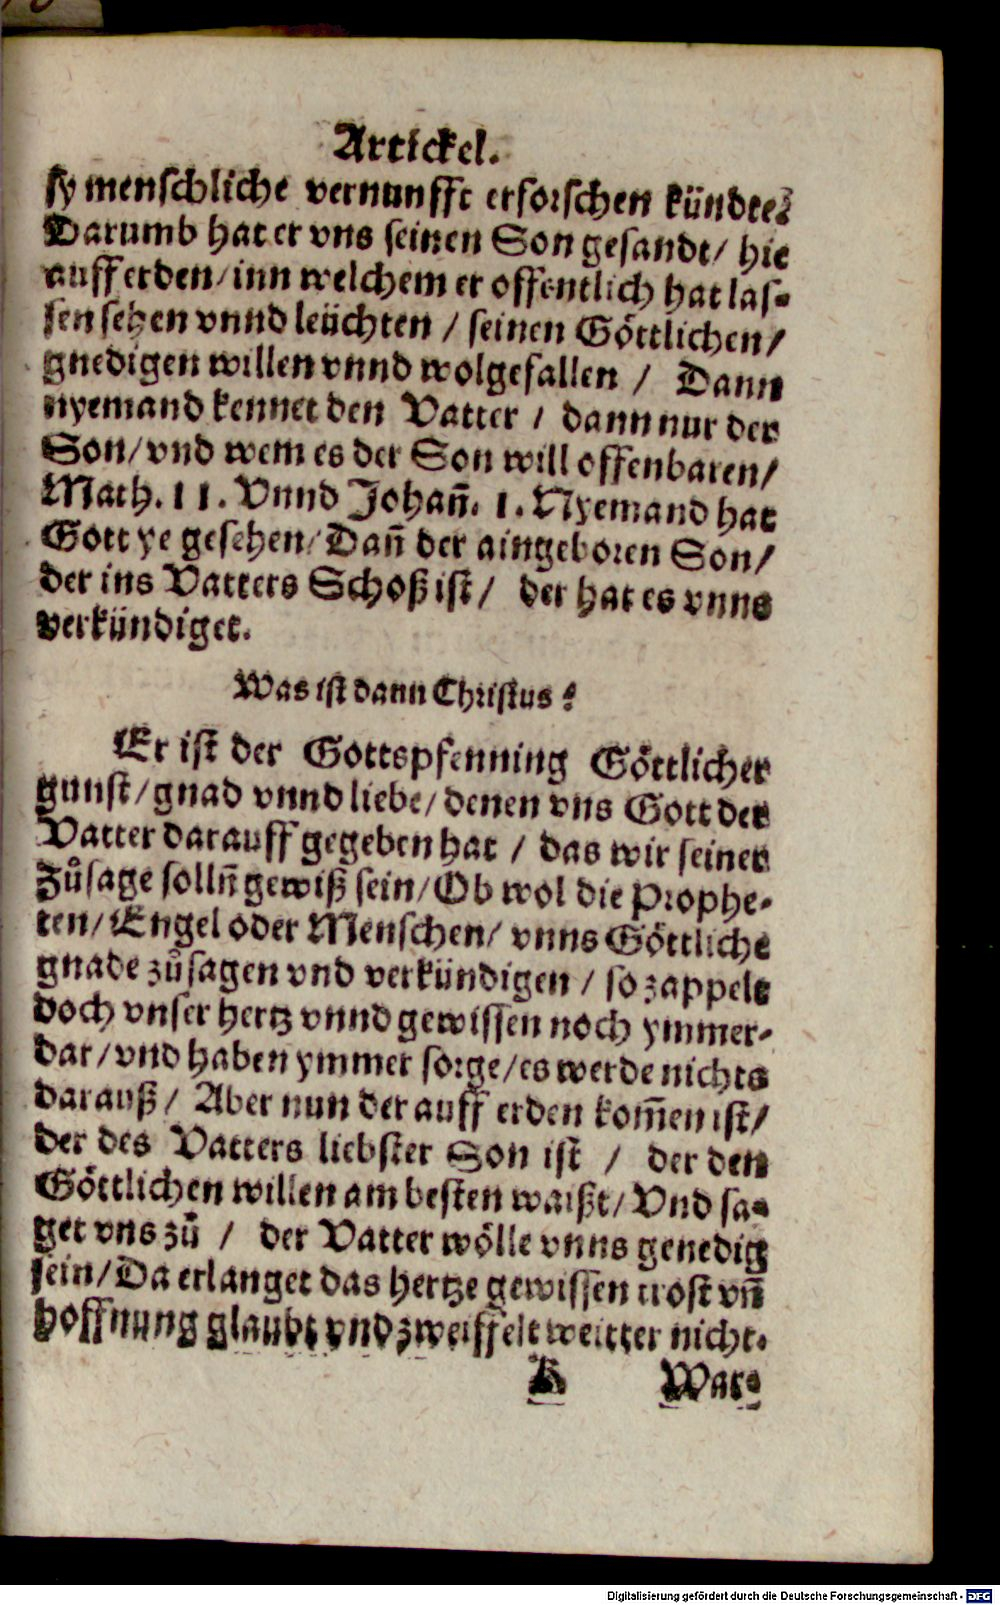 Artickel.
sy menschliche vernunfft erforschen kündte?
Darumb hat er vns seinen Son gesandt/ hie
auff erden/ inn welchem er offentlich hat las-
sen sehen vnnd leüchten / seinen Göttlichen/
gnedigen willen vnnd wolgefallen / Dann
nyemand kennet den Vatter / dann nur der
Son/ vnd wem es der Son will offenbaren/
Math. 11. Vnnd Johañ. 1. Nyemand hat
Gott ye gesehen/ Dañ der aingeboren Son/
der ins Vatters Schoß ist/ der hat es vnns
verkündiget.
Was ist dann Christus?
Er ist der Gottspfenning Göttlicher
gunst/ gnad vnnd liebe/ denen vns Gott der
Vatter darauff gegeben hat / das wir seiner
Zůsage sollñ gewiß sein/ Ob wol die Prophe-
ten/ Engel oder Menschen/ vnns Göttliche
gnade zůsagen vnd verkündigen / so zappelt
doch vnser hertz vnnd gewissen noch ymmer-
dar/ vnd haben ymmer sorge/ es werde nichts
darauß/ Aber nun der auff erden kom̃en ist/
der des Vatters liebster Son ist / der den
Göttlichen willen am besten waißt/ Vnd sa-
get vns zů / der Vatter wölle vnns genedig
sein/ Da erlanget das hertze gewissen trost vñ
hoffnung glaubt vnd zweiffelt weitter nicht.
K War-
Digitalisierung gefördert durch die Deutsche Forschungsgemeinschaft - DFG